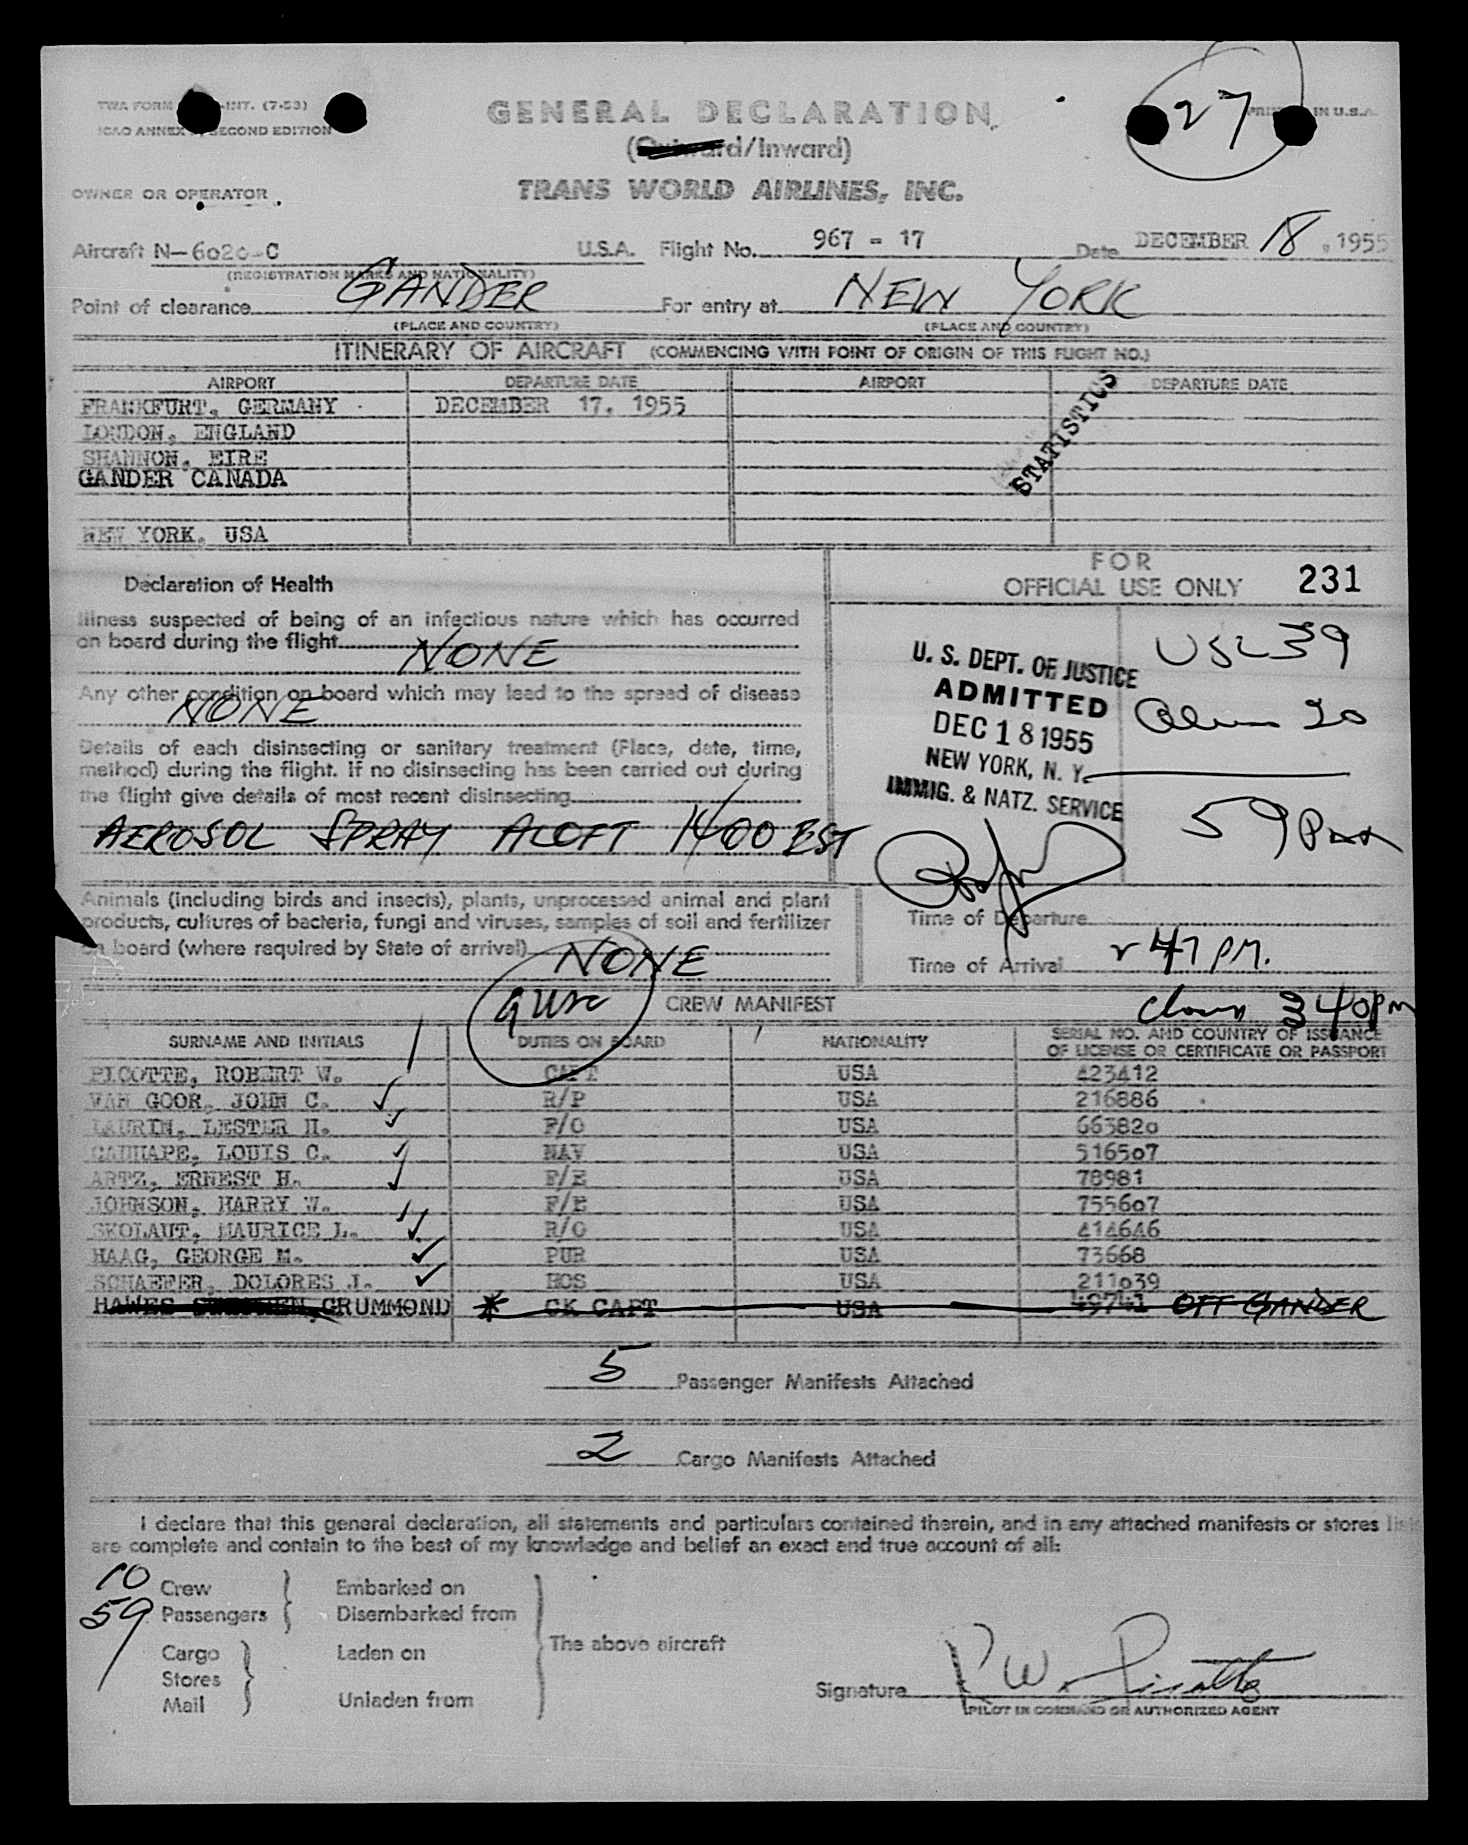 TWA FORM -INT. (7-53)
ICAO ANNEX SECOND EDITION
GENERAL DECLARATION
(Outward/Inward)
27
IN U.S.A.
OWNER OR OPERATOR
TRANS WORLD AIRLINES, INC.
Aircraft N-6020-C U.S.A. Flight No. 967 - 17 Date DECEMBER 18, 1955
(REGISTRATION MARKS AND NATIONALITY)
Point of clearance GANDER For entry at NEW YORK
(PLACE AND COUNTRY) (PLACE AND COUNTRY)
ITINERARY OF AIRCRAFT (COMMENCING WITH POINT OF ORIGIN OF THIS FLIGHT NO.)
AIRPORT DEPARTURE DATE AIRPORT DEPARTURE DATE
FRANKFURT, GERMANY DECEMBER 17, 1955
LONDON, ENGLAND
SHANNON, EIRE
GANDER CANADA
NEW YORK, USA
STATISTICS
Declaration of Health
Illness suspected of being of an infectious nature which has occurred
on board during the flight NONE
Any other condition on board which may lead to the spread of disease
NONE
Details of each disinsecting or sanitary treatment (Place, date, time,
method) during the flight. If no disinsecting has been carried out during
the flight give details of most recent disinsecting
AEROSOL SPRAY ALOFT 1400 EST
FOR
OFFICIAL USE ONLY 231
U. S. DEPT. OF JUSTICE
ADMITTED
DEC 18 1955
NEW YORK, N. Y.
IMMIG. & NATZ. SERVICE
USC 39
Alien 20
59 Pax
Animals (including birds and insects), plants, unprocessed animal and plant
products, cultures of bacteria, fungi and viruses, samples of soil and fertilizer
on board (where required by State of arrival) NONE
Time of Departure
Time of Arrival 247 PM.
340 pm
9 USC
CREW MANIFEST
SURNAME AND INITIALS DUTIES ON BOARD NATIONALITY SERIAL NO. AND COUNTRY OF ISSUANCE
OF LICENSE OR CERTIFICATE OR PASSPORT
PICOTTE, ROBERT W. CAPT USA 423412
VAN GOOR, JOHN C. R/P USA 216886
LAURIN, LESTER H. F/O USA 663820
CAUHAPE, LOUIS C. NAV USA 516507
ARTZ, ERNEST H. F/E USA 78981
JOHNSON, HARRY W. F/E USA 755607
SKOLAUT, MAURICE L. R/O USA 414646
HAAG, GEORGE M. PUR USA 73668
SCHAEFER, DOLORES J. HOS USA 211039
HAWES GRUMMOND * CK CAPT USA 49741 OFF GANDER
5 Passenger Manifests Attached
2 Cargo Manifests Attached
I declare that this general declaration, all statements and particulars contained therein, and in any attached manifests or stores
are complete and contain to the best of my knowledge and belief an exact and true account of all:
10 Crew Embarked on
59 Passengers Disembarked from
The above aircraft
Cargo Laden on
Stores
Mail Unladen from
Signature R W. Picotte
PILOT IN COMMAND OR AUTHORIZED AGENT